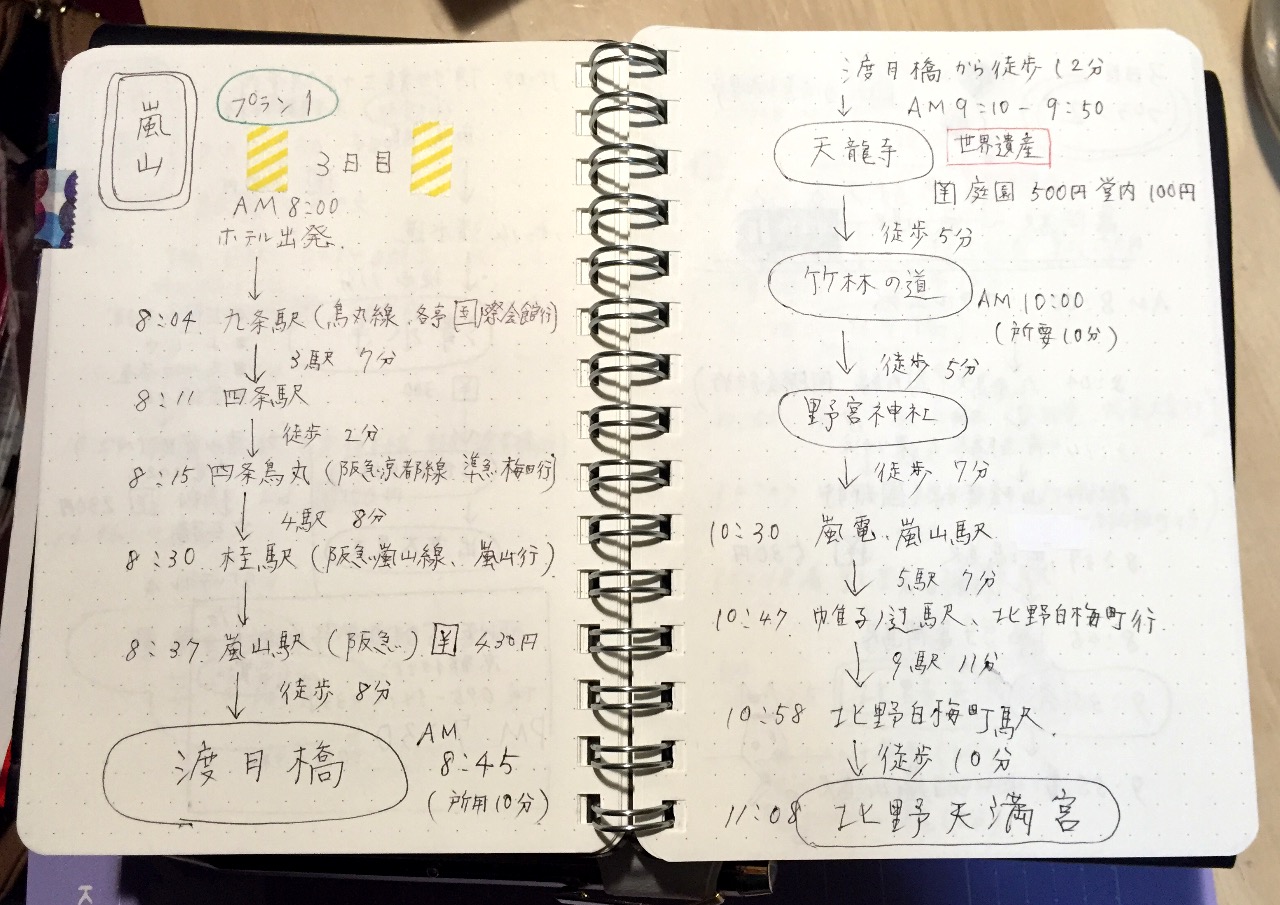 嵐山
プラン1
3日目
AM 8:00
ホテル出発.
↓
8:04 九条駅(烏丸線、各亭 国際会館行)
↓ 3駅 7分
8:11 四条駅
↓ 徒歩 2分
8:15 四条烏丸(阪急京都線 準急 梅田行)
↓ 4駅 8分
8:30 桂駅(阪急嵐山線、嵐山行)
↓
8:37 嵐山駅(阪急) ¥ 430円
↓ 徒歩 8分
渡月橋
AM
8:45
(所用10分)
渡月橋から徒歩12分
↓ AM 9:10 - 9:50
天龍寺 世界遺産
¥ 庭園 500円 堂内 100円
↓ 徒歩5分
竹林の道 AM 10:00
(所要10分)
↓ 徒歩 5分
野宮神社
↓ 徒歩 7分
10:30 嵐電、嵐山駅
↓ 5駅 7分
10:47 帷子ノ辻駅、北野白梅町行.
↓ 9駅 11分
10:58 北野白梅町駅.
↓ 徒歩 10分
11:08 北野天満宮
K